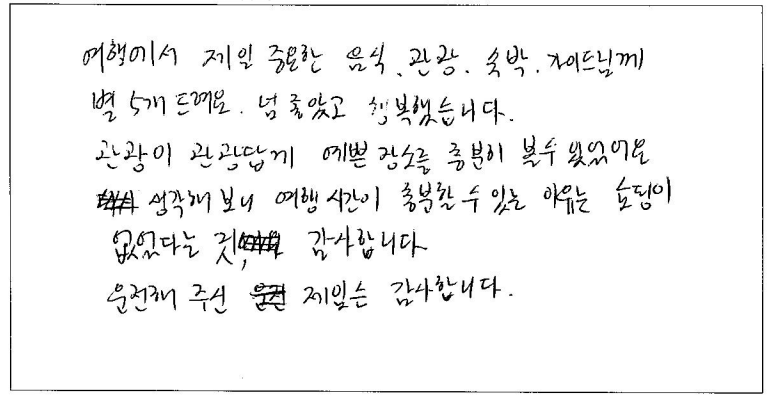 여행에서 제일 중요한 음식、관광、숙박、가이드님께
별 5개 드려요. 넘 좋았고 행복했습니다.
관광이 관광답게 예쁜 장소를 충분히 볼수 있었어요
생각해 보니 여행 시간이 충분할 수 있는 이유는 쇼핑이
없었다는 것, 감사합니다
운전해 주신 제임스 감사합니다.